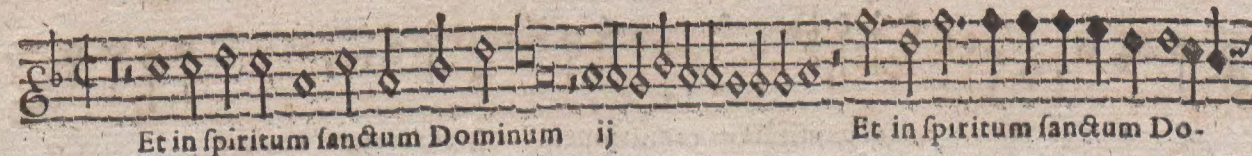 Et in ſpiritum ſanctum Dominum ij Et in ſpiritum ſanctum Do-